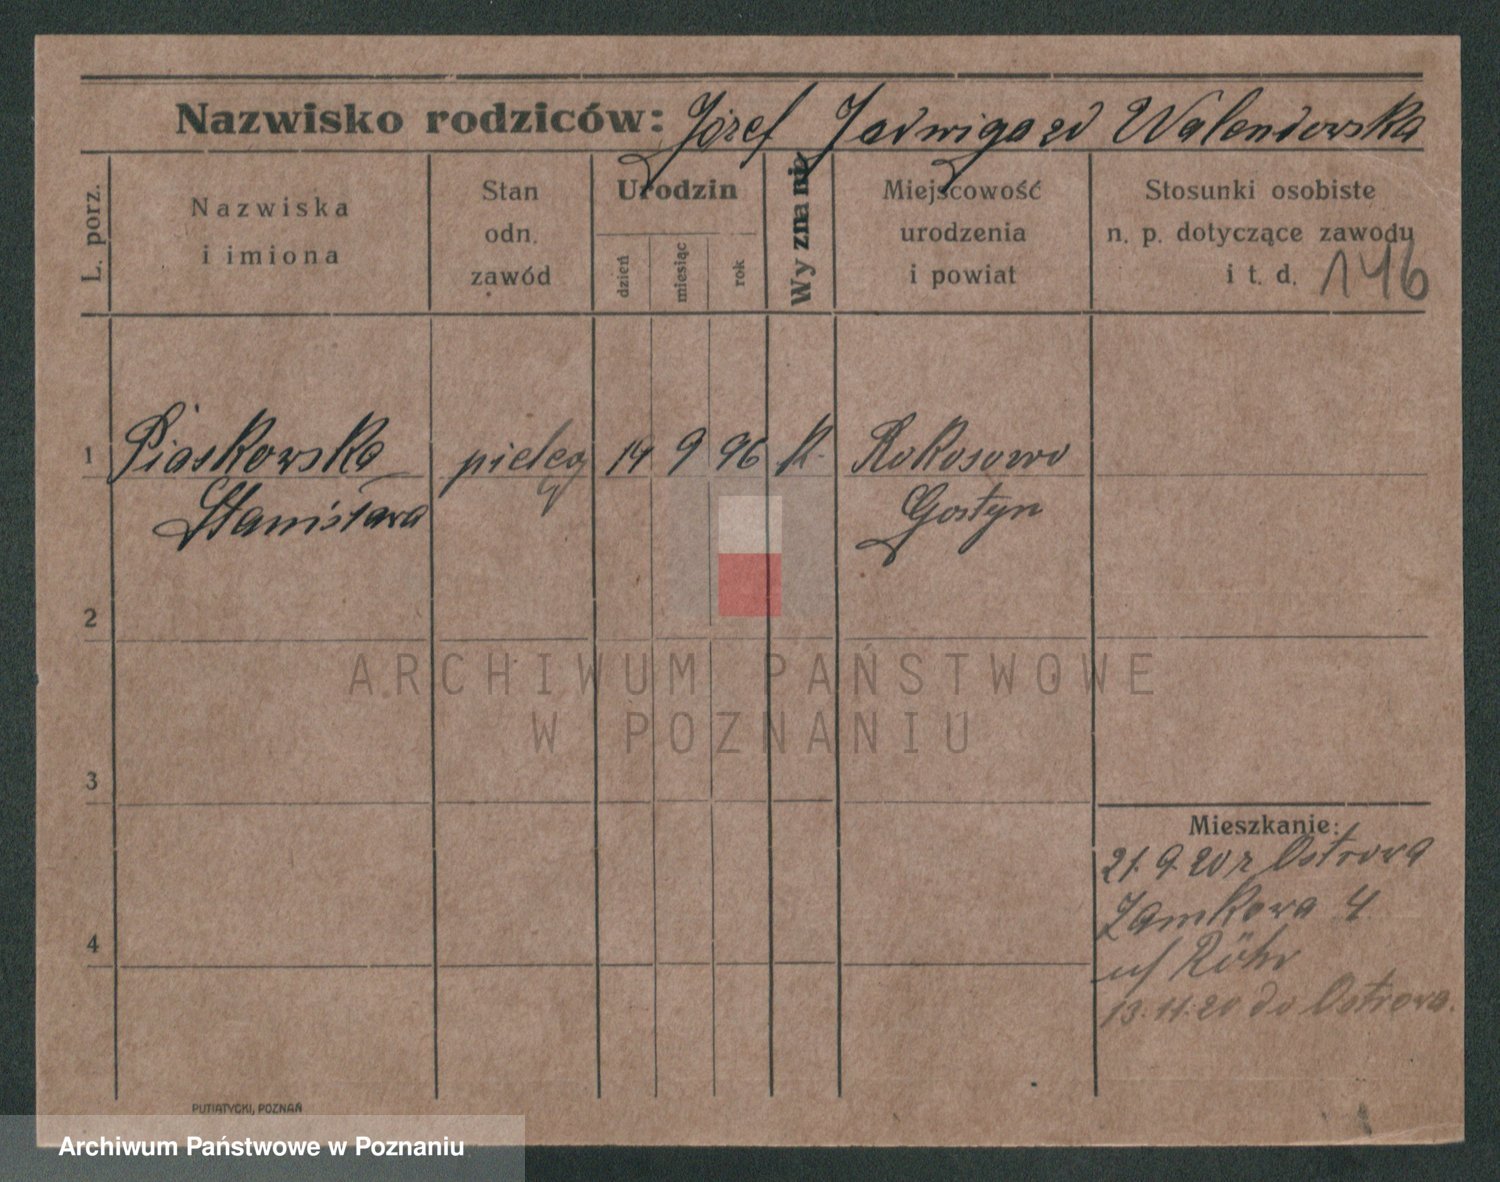 Nazwisko rodziców: Józef Jadwiga zd Walendowska
L. porz.
Nazwiska
i imiona
Stan
odn.
zawód
Urodzin
dzień
miesiąc
rok
Wyznanie
Miejscowość
urodzenia
i powiat
Stosunki osobiste
n. p. dotyczące zawodu
i t. d. 146
1 Piaskowska pielęg 14 9 96 k. Rokosowo
Stanisława Gostyn
2
3
4
Mieszkanie:
21. 9. 20 r Ostrowa
Zamkowa 4
u/ Röhr
13. 11. 20 do Ostrowa.
PUTIATYCKI, POZNAŃ
ARCHIWUM PAŃSTWOWE
W POZNANIU
Archiwum Państwowe w Poznaniu